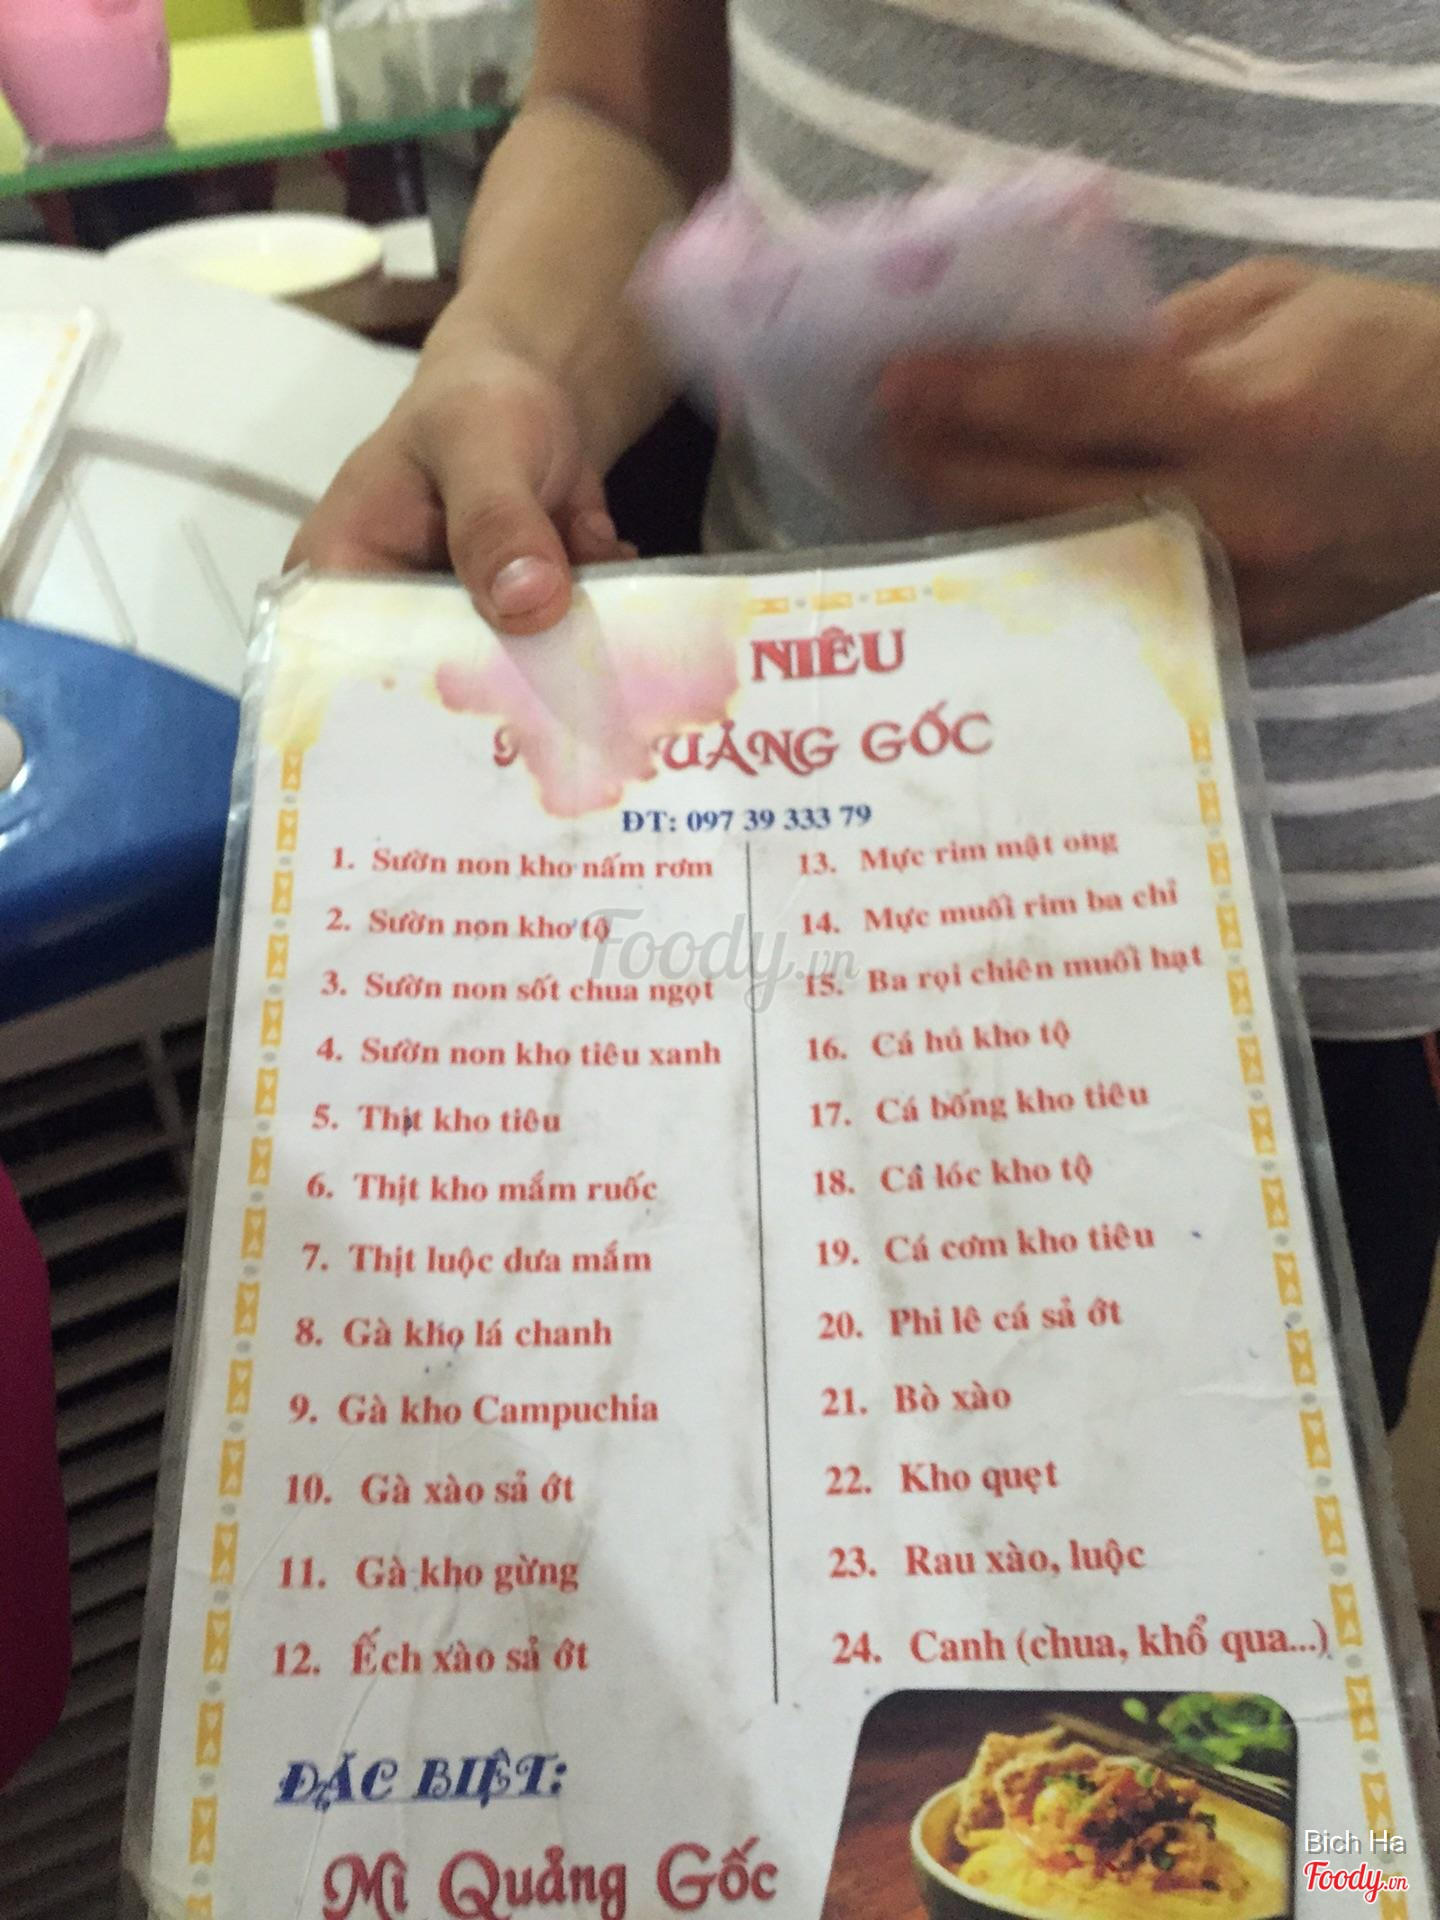 NIÊU
QUẢNG GỐC
ĐT: 097 39 333 79
1. Sườn non kho nấm rơm
2. Sườn non kho tộ
3. Sườn non sốt chua ngọt
4. Sườn non kho tiêu xanh
5. Thịt kho tiêu
6. Thịt kho mắm ruốc
7. Thịt luộc dưa mắm
8. Gà kho lá chanh
9. Gà kho Campuchia
10. Gà xào sả ớt
11. Gà kho gừng
12. Ếch xào sả ớt
13. Mực rim mật ong
14. Mực muối rim ba chỉ
15. Ba rọi chiên muối hạt
16. Cá hú kho tộ
17. Cá bống kho tiêu
18. Cá lóc kho tộ
19. Cá cơm kho tiêu
20. Phi lê cá sả ớt
21. Bò xào
22. Kho quẹt
23. Rau xào, luộc
24. Canh (chua, khổ qua...)
ĐẶC BIỆT:
Mì Quảng Gốc
Foody.vn
Bich Ha
Foody.vn